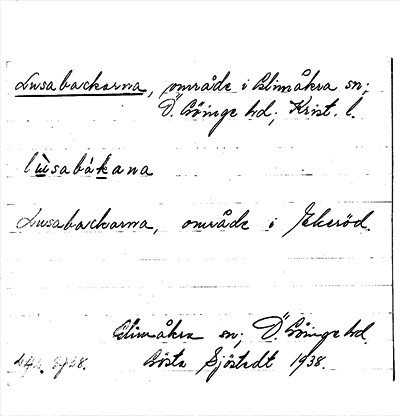 Lusabackarna, område i Glimåkra sn;
Ö. Göinge hd; Krist. l.
lùsabákana
Lusabackarna, område i Ekeröd.
Glimåkra sn; Ö. Göinge hd.
Gösta Sjöstedt 1938.